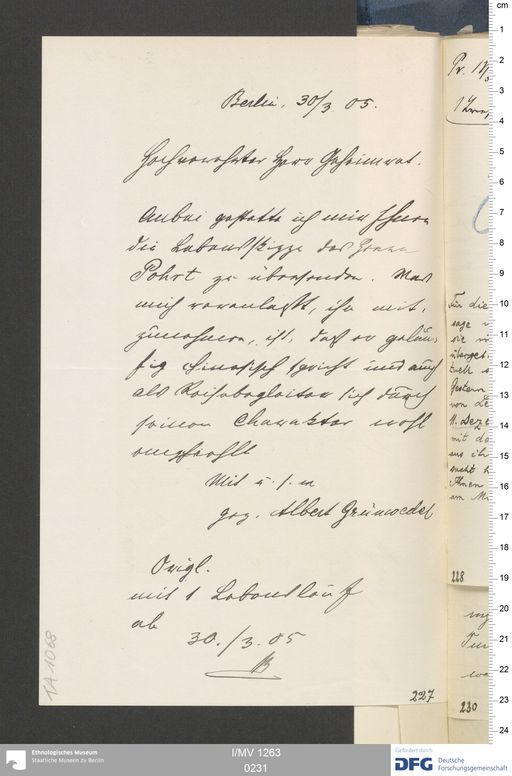 Berlin, 30/3. 05.
Hochverehrter Herr Geheimrat.
Anbei gestatte ich mir Ihnen
die Lebensskizze des Herrn
Pohrt zu übersenden. Was
mich veranlaßt, ihn mit-
zunehmen, ist, daß er geläu-
fig chinesisch spricht und auch
als Reisebegleiter sich durch
seinen Charakter wohl
empfiehlt
Mit u. s. w
gez. Albert Grünwedel
Origl.
mit 1 Lebenslauf
ab
30./3. 05
B
TA 1068
227
Für die
sage
sie
Gestern
von
11. Dez
mit
uns
sucht
Ihnen
am
228
230
cm
1
2
3
4
5
6
7
8
9
10
11
12
13
14
15
16
17
18
19
20
21
22
23
24
Ethnologisches Museum
Staatliche Museen zu Berlin
I/MV 1263
0231
Gefördert durch
DFG Deutsche
Forschungsgemeinschaft